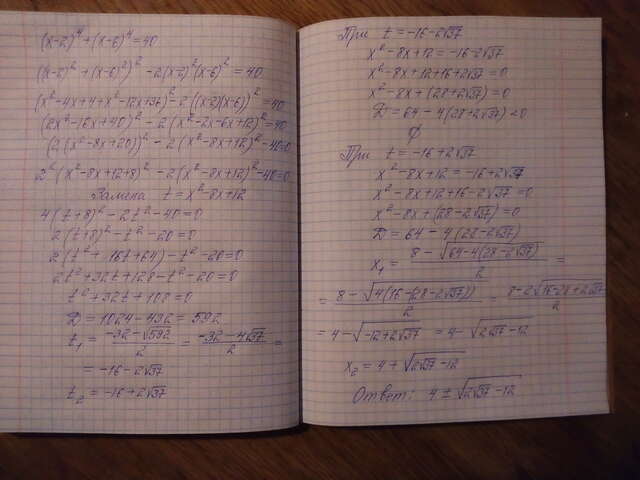 (x-2)⁴+(x-6)⁴=40
((x-2)²+(x-6)²)²-2(x-2)²(x-6)²=40
(x²-4x+4+x²-12x+36)²-2((x-2)(x-6))²=40
(2x²-16x+40)²-2(x²-2x-6x+12)²=40
(2(x²-8x+20))²-2(x²-8x+12)²-40=0
2²(x²-8x+12+8)²-2(x²-8x+12)²-40=0
Замена t=x²-8x+12
4(t+8)²-2t²-40=0
2(t+8)²-t²-20=0
2(t²+16t+64)-t²-20=0
2t²+32t+128-t²-20=0
t²+32t+108=0
D=1024-432=592
t₁=(-32-√592)/2=(-32-4√37)/2=
=-16-2√37
t₂=-16+2√37
При t=-16-2√37
x²-8x+12=-16-2√37
x²-8x+12+16+2√37=0
x²-8x+(28+2√37)=0
D=64-4(28+2√37)<0
∅
При t=-16+2√37
x²-8x+12=-16+2√37
x²-8x+12+16-2√37=0
x²-8x+(28-2√37)=0
D=64-4(28-2√37)
x₁=(8-√(64-4(28-2√37)))/2=
=(8-√(4(16-(28-2√37))))/2=(8-2√(16-28+2√37))/2
=4-√(-12+2√37)=4-√(2√37-12)
x₂=4+√(2√37-12)
Ответ: 4±√(2√37-12)